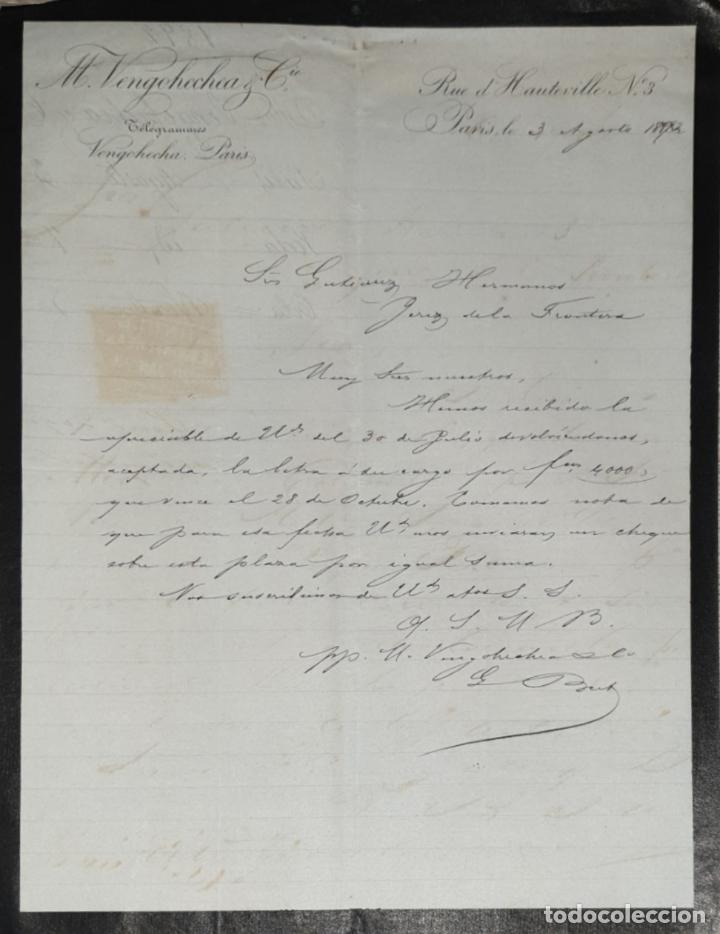 M. Vengohechea & Cie.
Telegrammes
Vengohecha. Paris
Rue d'Hauteville Nº 3
Paris, le 3 Agosto 189
Srs Gutierrez Hermanos
Jerez de la Frontera
Muy Srs nuestros,
Hemos recibido la
apreciable de Uds del 30 de Julio devolviendonos,
aceptada, la letra á su cargo por fcos 4000,
que vence el 28 de Octubre. Tomamos nota de
que para esa fecha Uds nos enviaran un cheque
sobre esta plaza por igual suma.
Nos suscribimos de Uds atos S. S.
Q. S. M. B.
pp. M. Vengohechea & Co
G
todocoleccion
todocoleccion.net